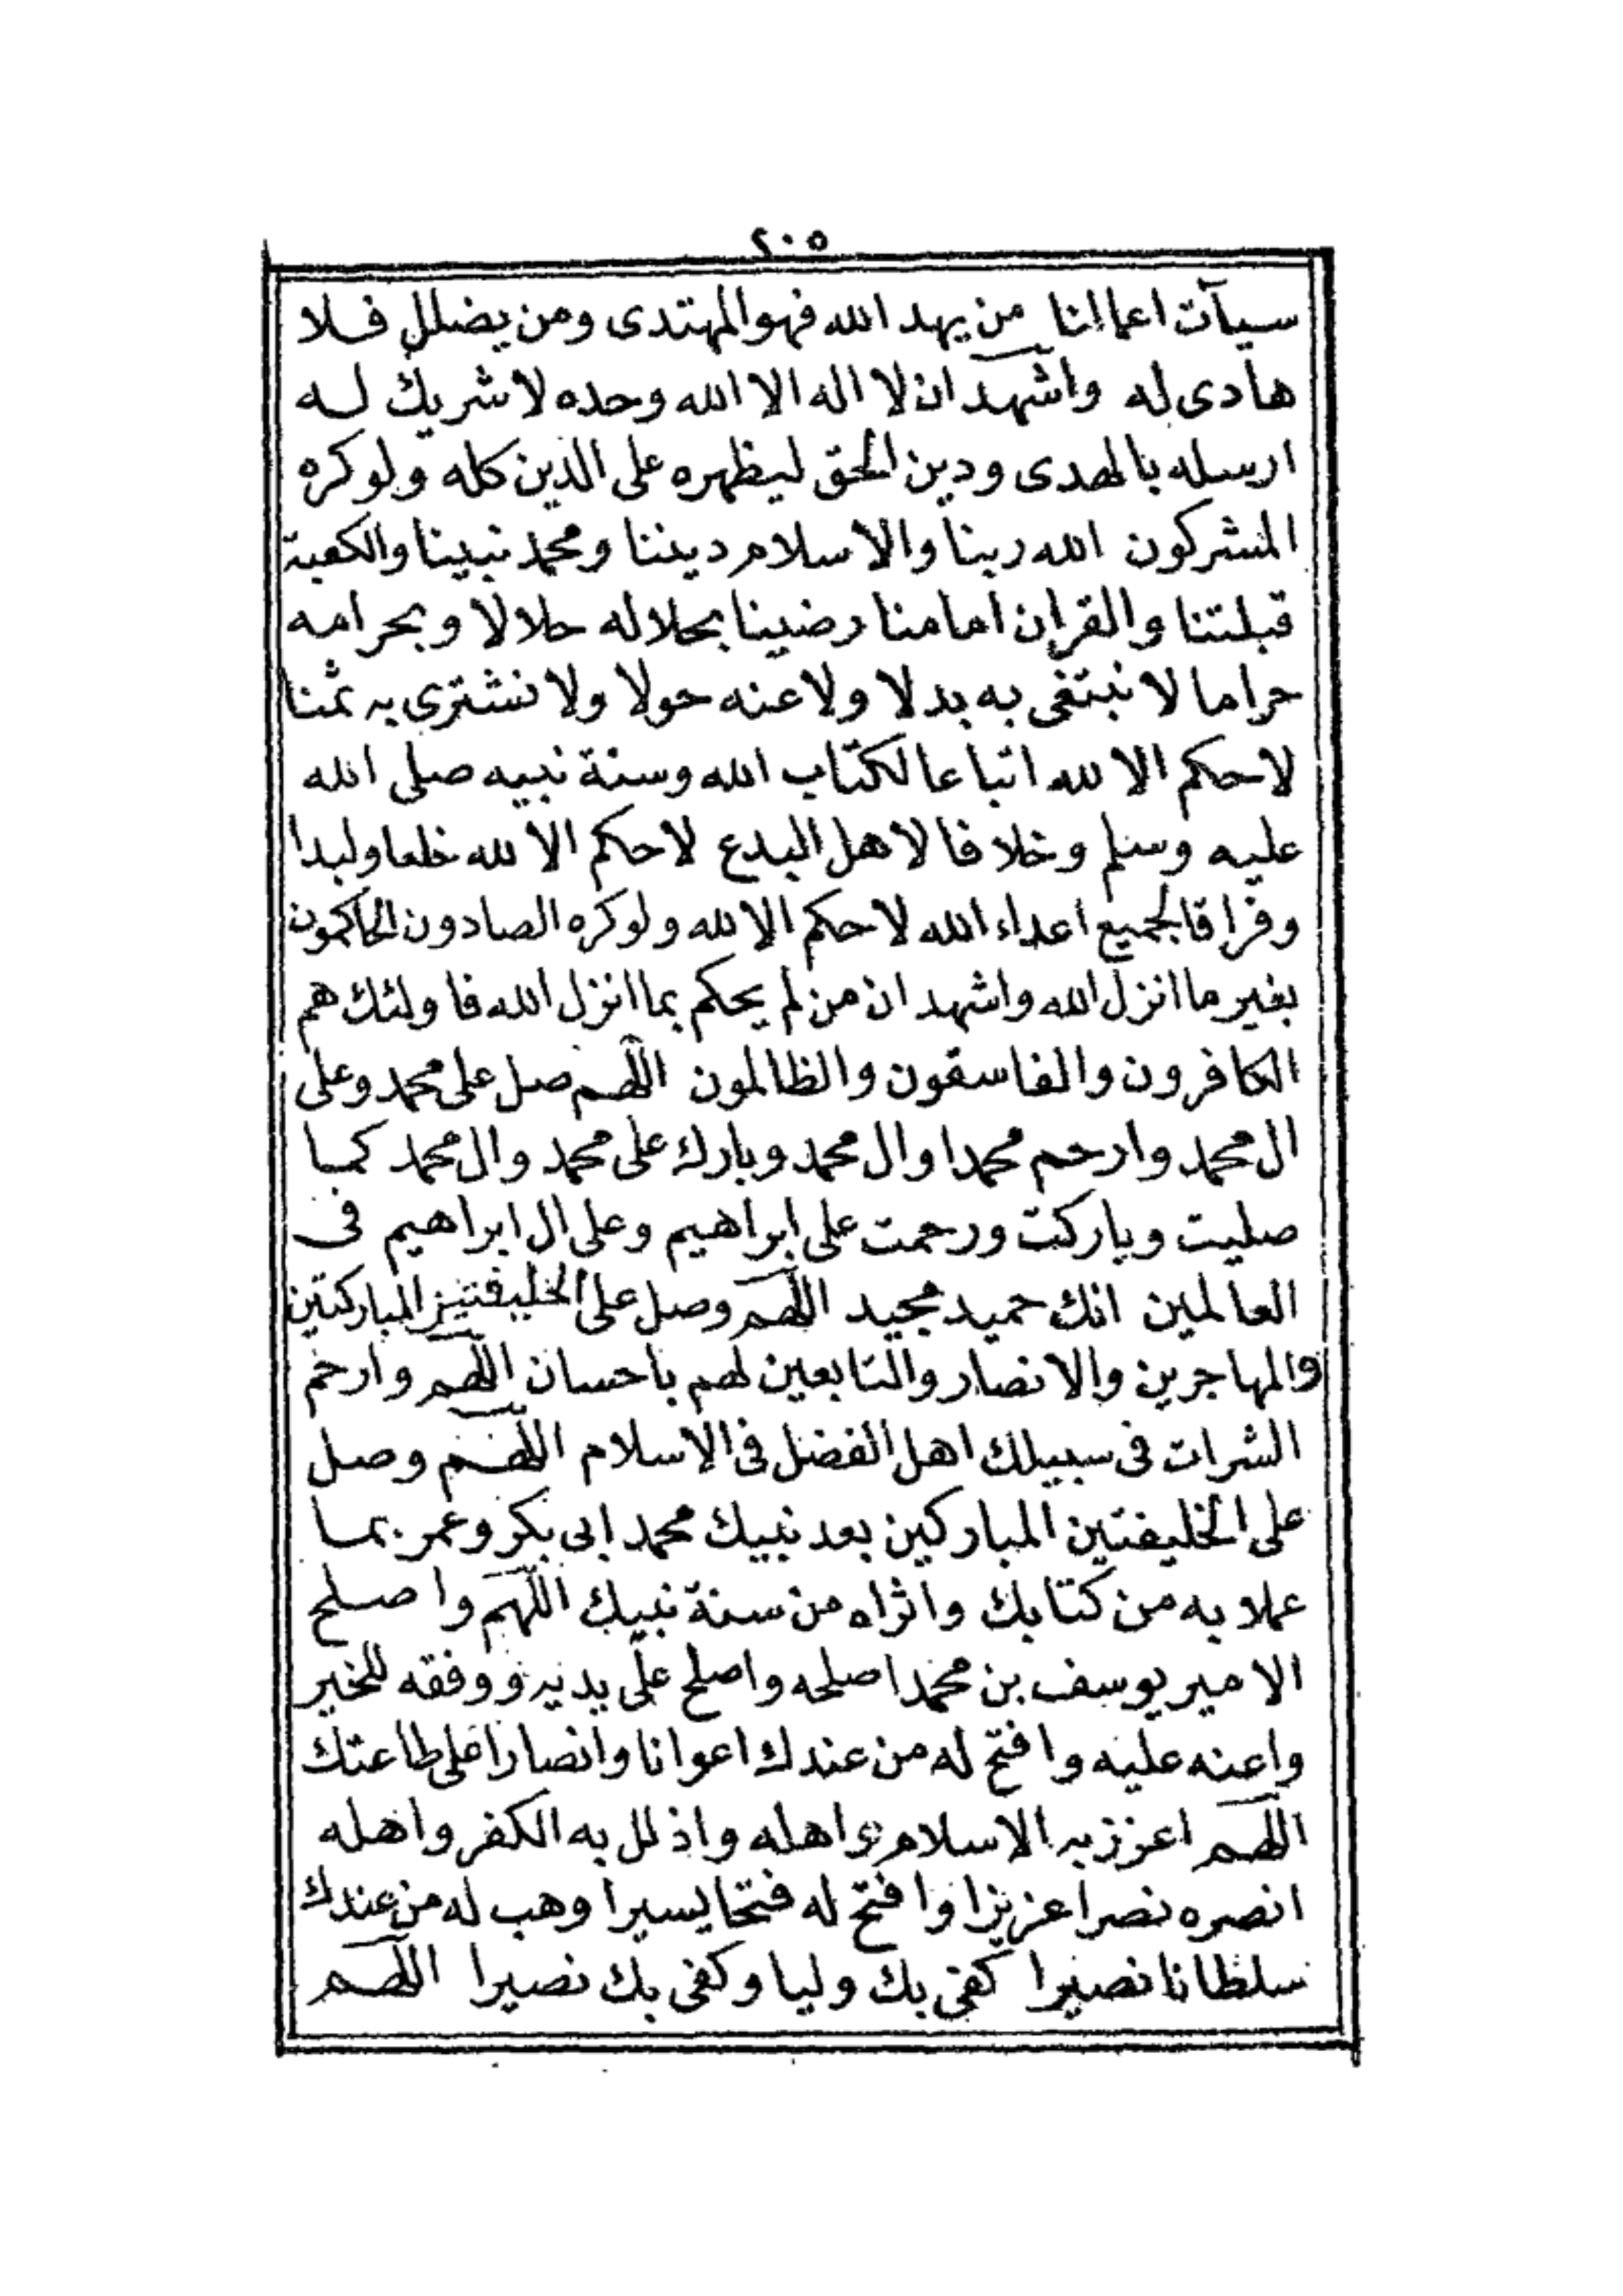 ٢٠٥
سيآت اعمالنا من يهد الله فهو المهتدى ومن يضلل فلا
هادى له واشهد ان لا اله الا الله وحده لا شريك له
ارسله بالهدى ودين الحق ليظهره على الدين كله ولوكره
المشركون الله ربنا والاسلام ديننا ومحمد نبينا والكعبة
قبلتنا والقران امامنا رضينا بحلاله حلالا وبحرامه
حراما لا نبتغى به بدلا ولا عنه حولا ولا نشترى به ثمنا
لا حكم الا لله اتباعا لكتاب الله وسنة نبيه صلى الله
عليه وسلم وخلافا لاهل البدع لا حكم الا لله خلعا ولبدا
وفراقا لجميع اعداء الله لا حكم الا لله ولوكره الصادون الحاكمون
بغير ما انزل الله واشهد ان من لم يحكم بما انزل الله فاولئك هم
الكافرون والفاسقون والظالمون اللهم صل على محمد وعلى
ال محمد وارحم محمدا وال محمد وبارك على محمد وال محمد كما
صليت وباركت ورحمت على ابراهيم وعلى ال ابراهيم فى
العالمين انك حميد مجيد اللهم وصل على الخليفتين المباركتين
والمهاجرين والانصار والتابعين لهم باحسان اللهم وارحم
الشرات فى سبيلك اهل الفضل فى الاسلام اللهم وصل
على الخليفتين المباركين بعد نبيك محمد ابى بكر وعمر بما
عملا به من كتابك واثراه من سنة نبيك اللهم واصلح
الامير يوسف بن محمد اصلحه واصلح على يديه ووفقه للخير
واعنه عليه وافتح له من عندك اعوانا وانصارا على طاعتك
اللهم اعزز به الاسلام واهله واذلل به الكفر واهله
انصره نصرا عزيزا وافتح له فتحا يسيرا وهب له من عندك
سلطانا نصيرا كفى بك وليا وكفى بك نصيرا اللهم